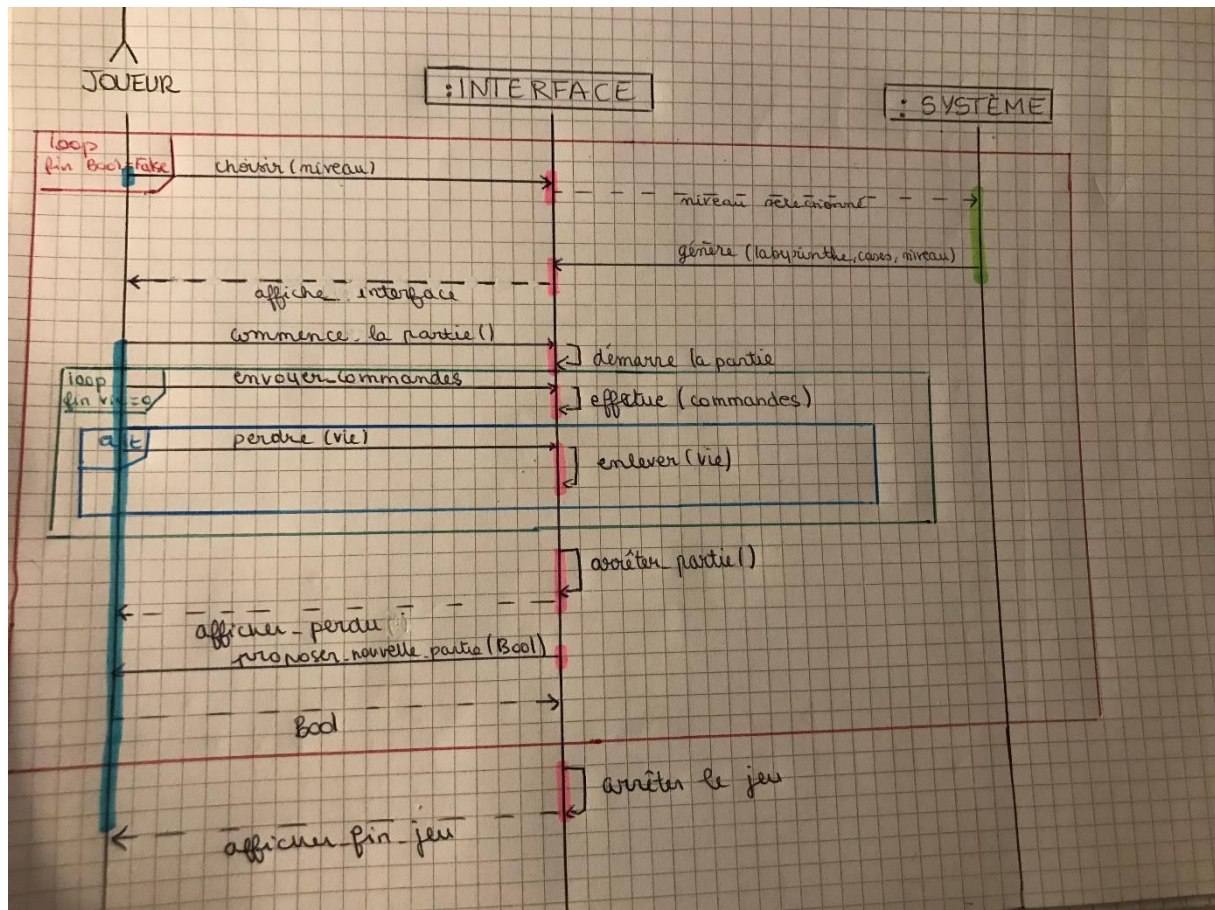 JOUEUR
:INTERFACE
: SYSTÈME
loop
fin Bool=False
choisir (niveau)
niveau sélectionné
génère (labyrinthe, cases, niveau)
affiche interface
commence_la partie()
démarre la partie
loop
fin vie=0
envoyer_commandes
effectue (commandes)
alt
perdre (vie)
enlever (vie)
arrêter_partie()
afficher_perdu
proposer_nouvelle_partie (Bool)
Bool
arrêter le jeu
afficher_fin_jeu